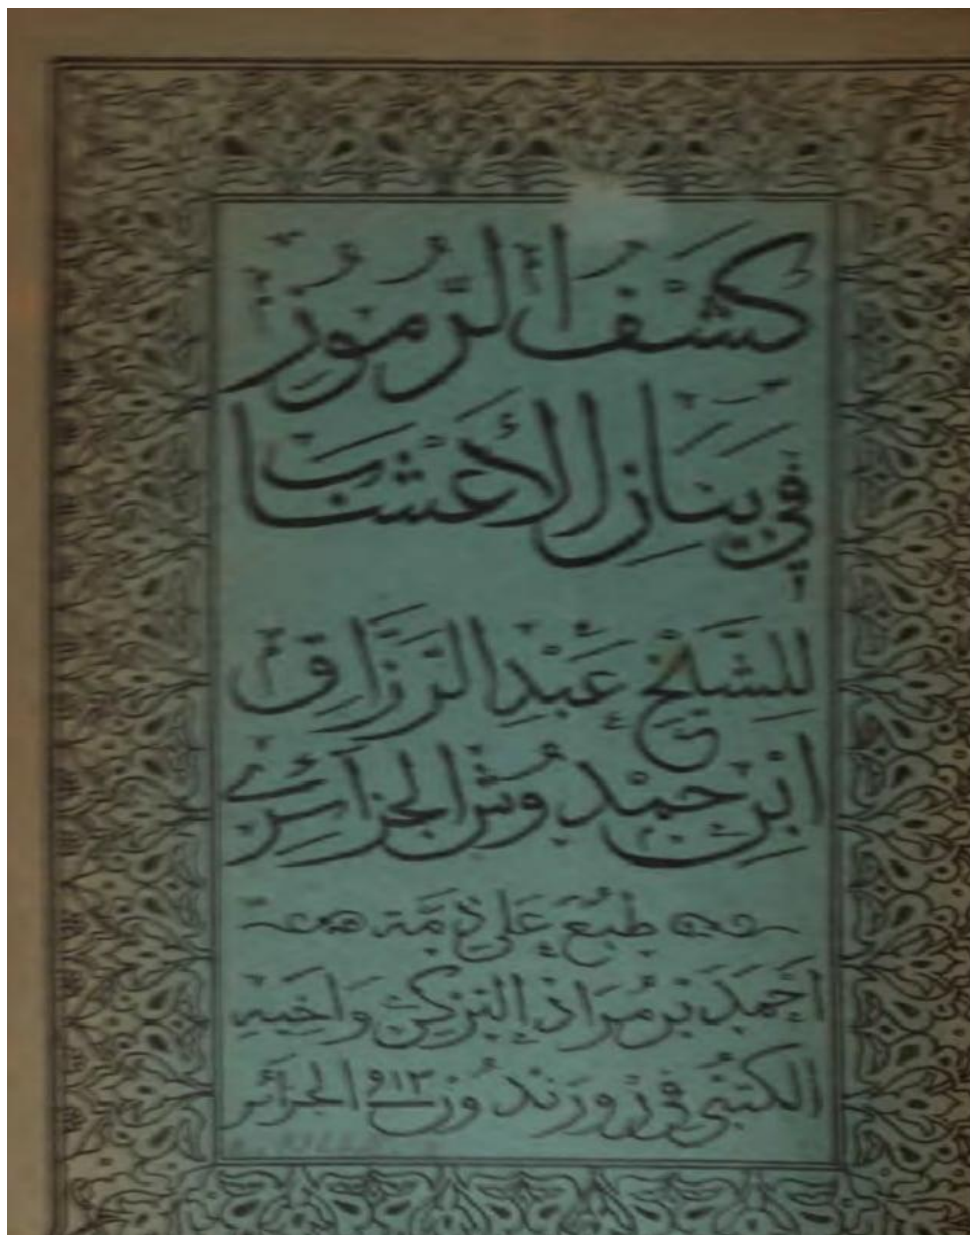 كَشْفُ الرُّمُوزْ
فِي بَيَانِ الْأَعْشَابْ
لِلشَّيْخِ عَبْدِ الرَّزَّاقِ
ابْنِ حَمْدُوشْ الْجَزَائِرِي
طُبِعَ عَلَى ذِمَّة
أَحْمَد بَن مُرَاد التركي وَأَخِيهِ
الكتبي في رُو رَنْدُون ١٣ الجزائر